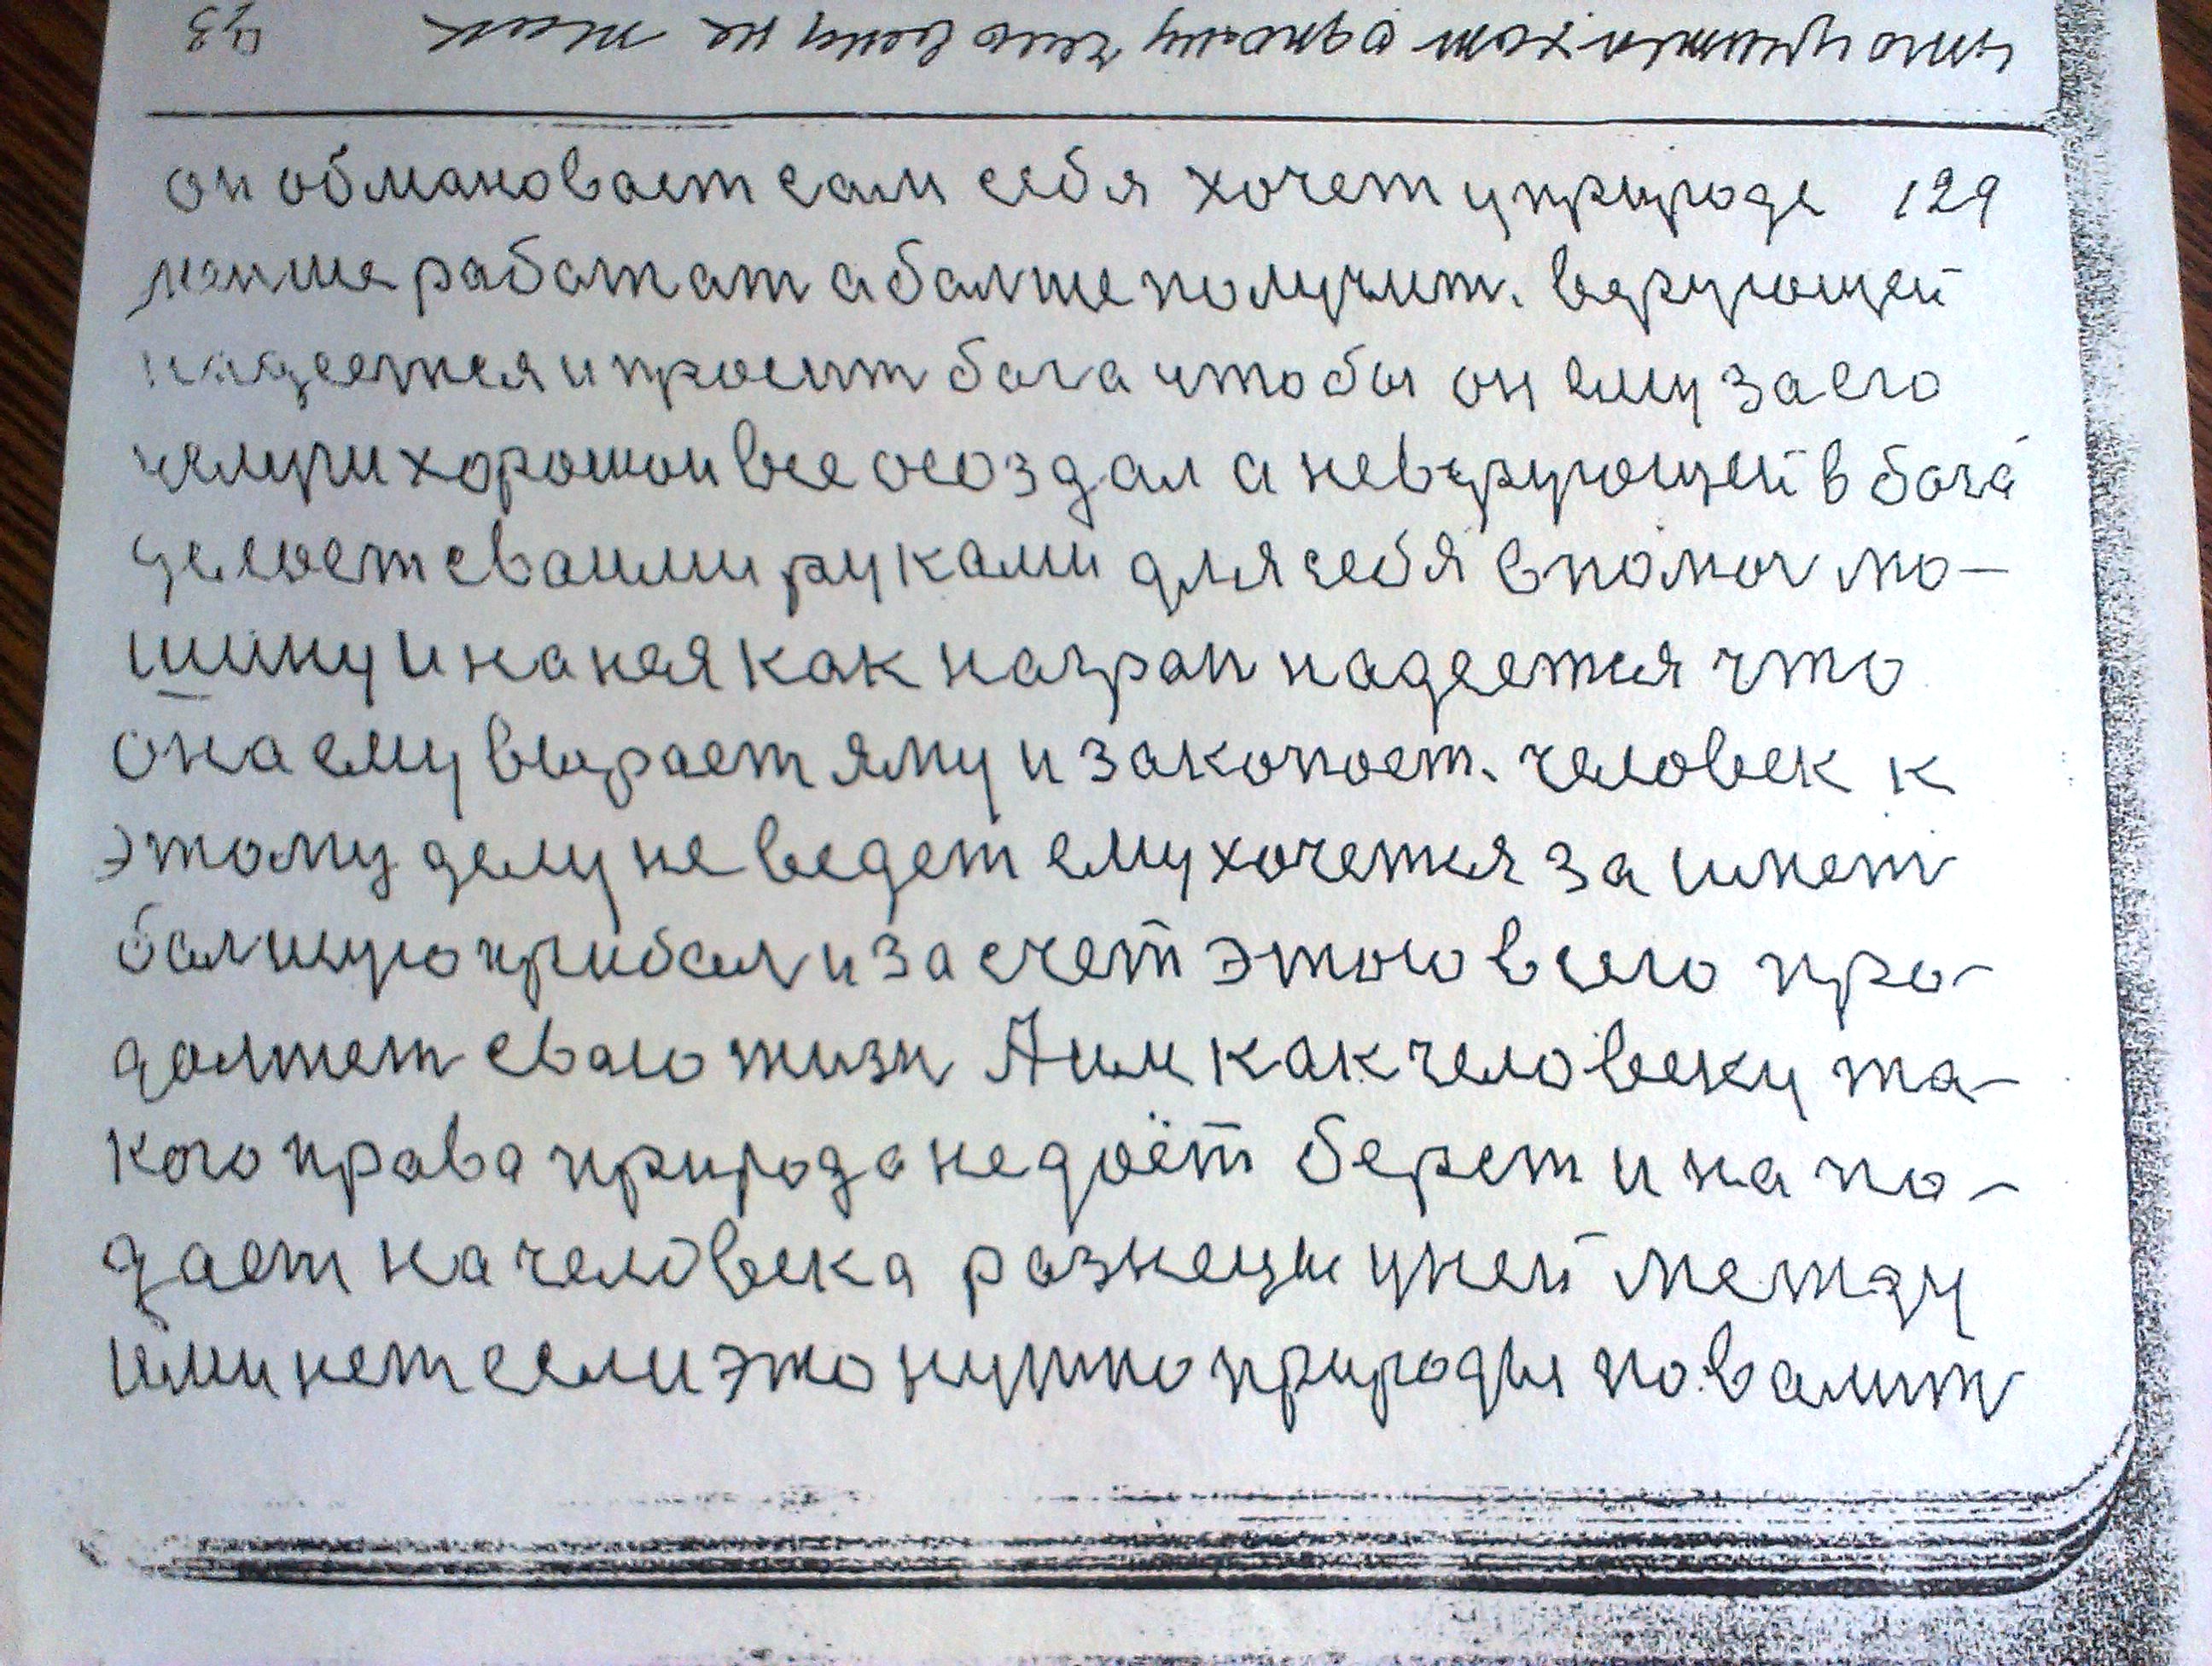 он обмановает сам себя хочет у природе 129
менше работат а болше получит. верующей
надеется и просит бога чтобы он ему за его
челури хорошои все осоздал а неверующей в бога
делоет сваими руками для себя в помоч мо-
шину и на нея как на раи надеется что
она ему вырает яму и закопоет. человек к
этому делу не ведет ему хочется за имет
болшую прибыл и за счет этого всего про-
должет сваю жизн Аим как человеку та-
кого права природа не доёт берет и на по-
дает на человека разнецы уней между
ими нет если это нужно природы повалит